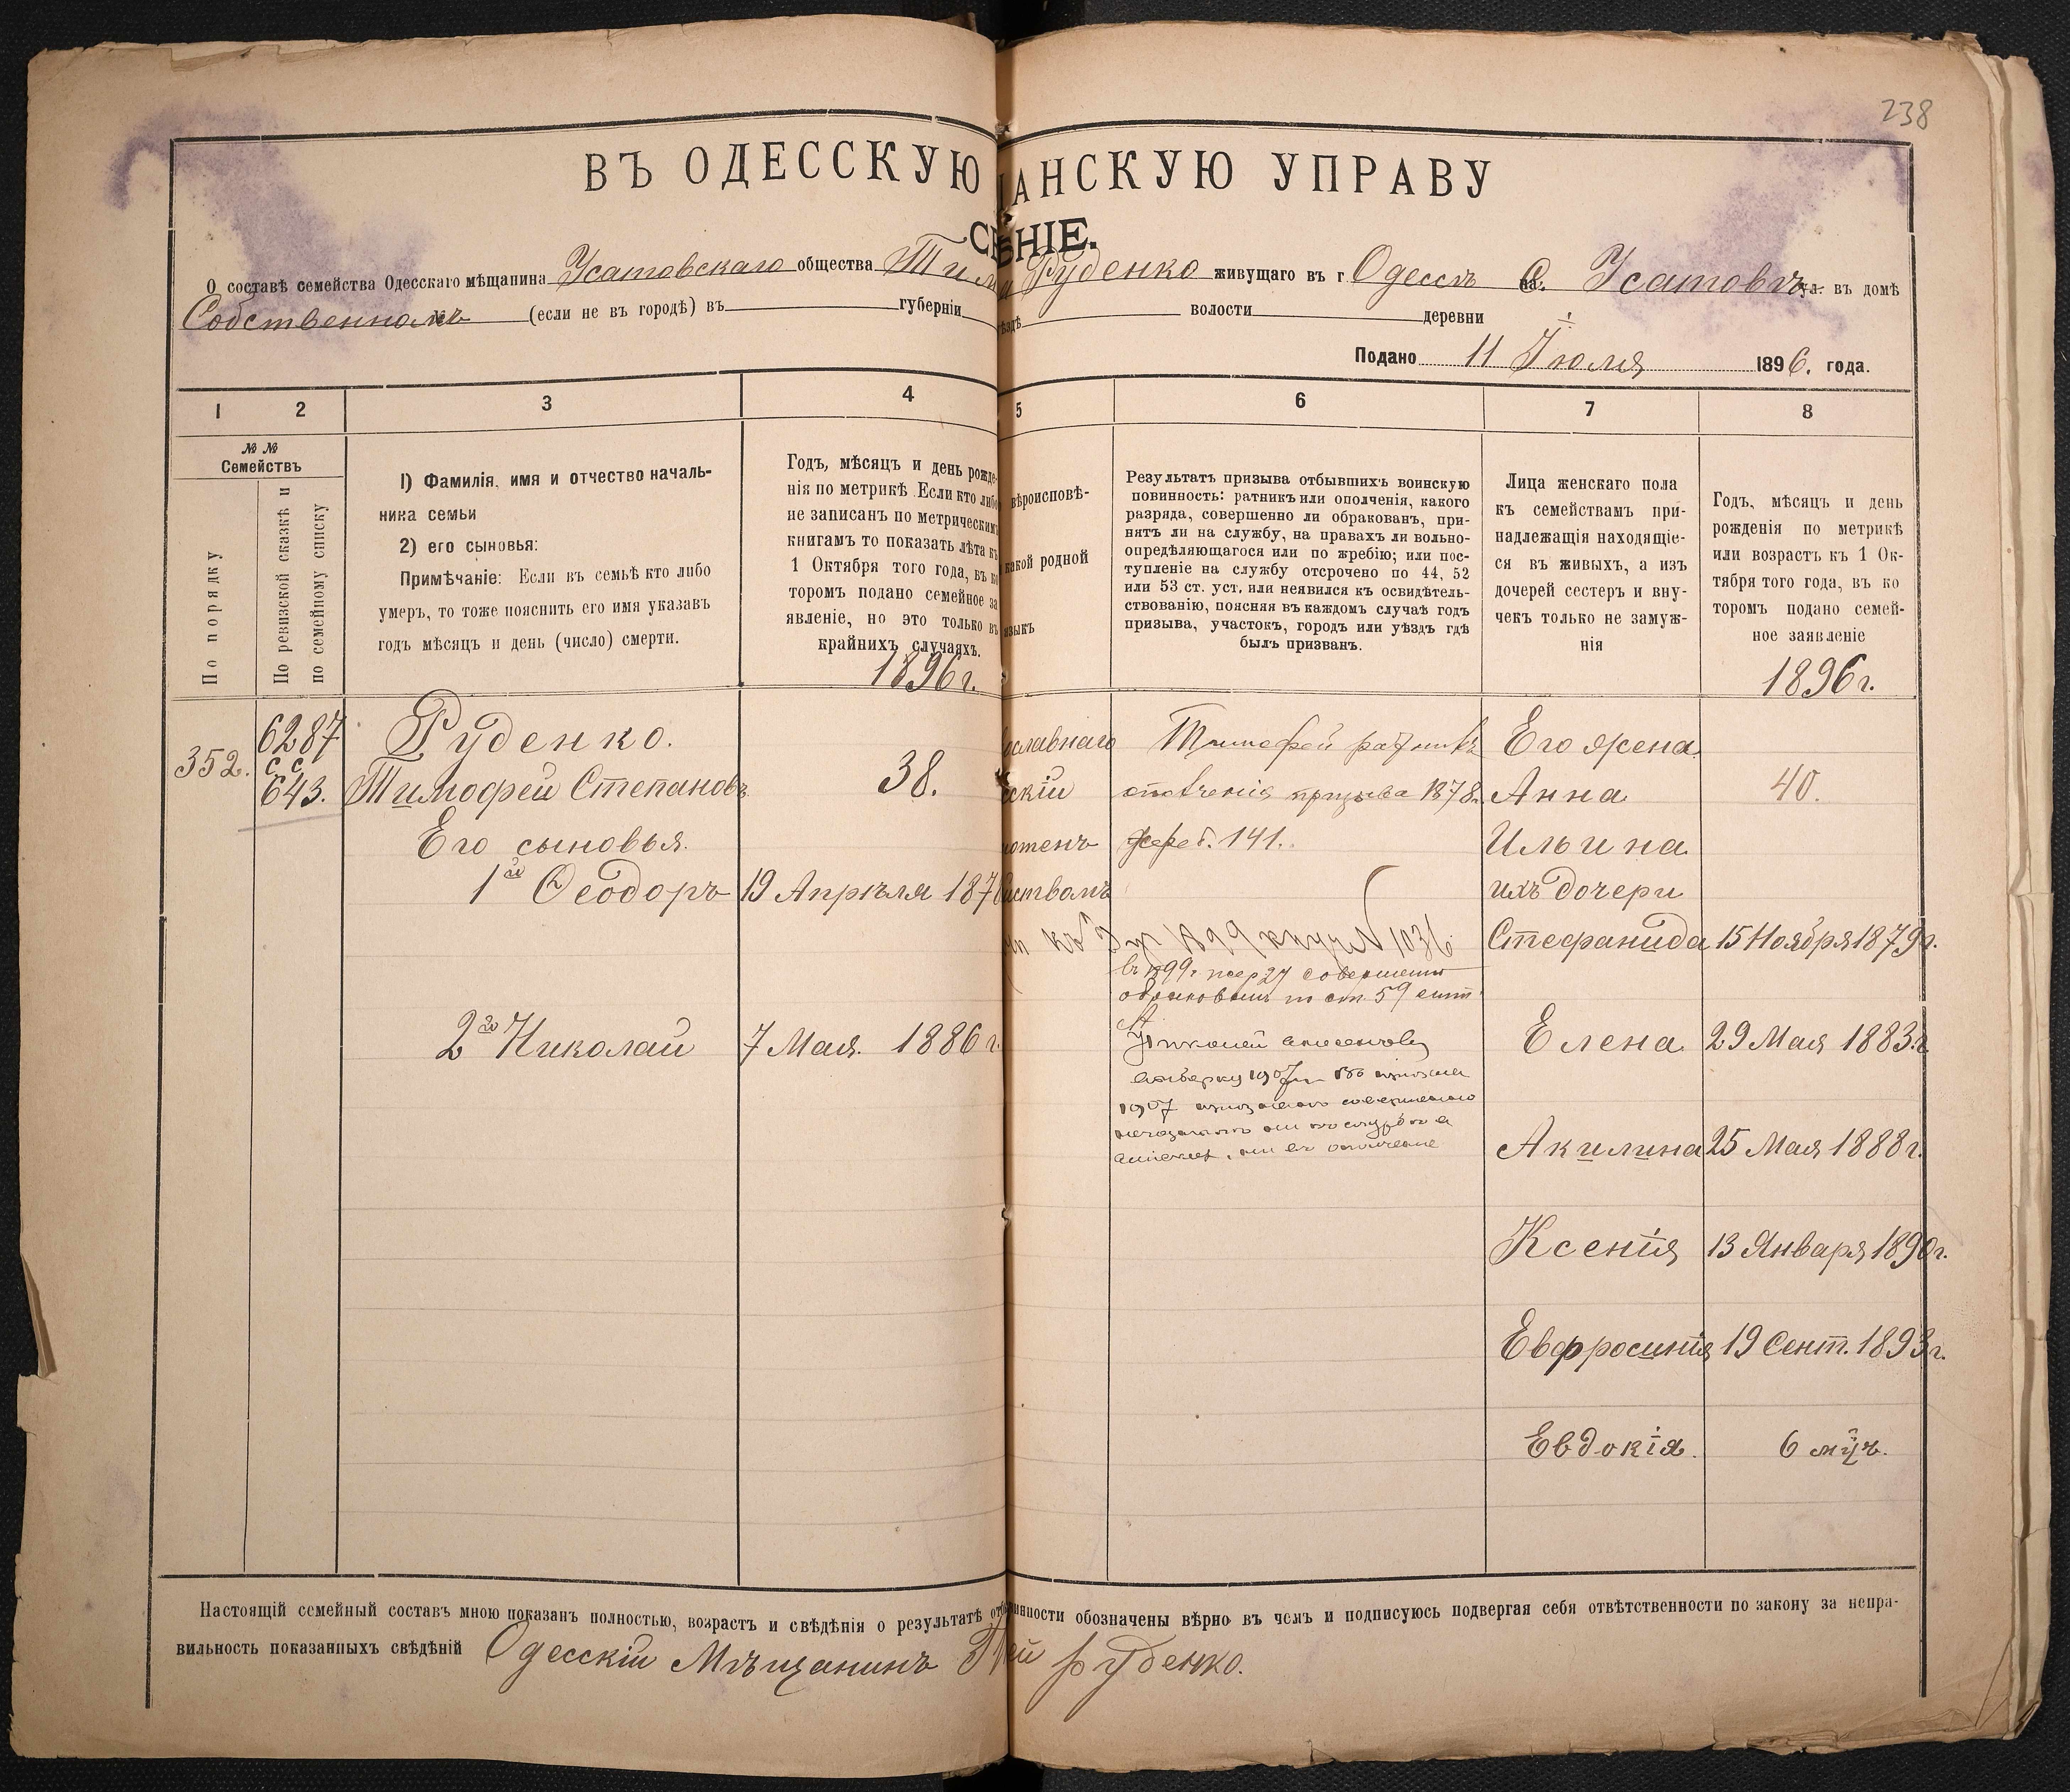 238
ВЪ ОДЕССКУЮ АНСКУЮ УПРАВУ
НІЕ.
О составѣ семейства Одесскаго мѣщанина Усатовскаго общества Тим Руденко живущаго въ г Одессѣ С. Усатовъ ул. въ домѣ
Собственномъ (если не въ городѣ) въ губерніи волости деревни
Подано 11 Іюля 1896. года.
1 2 3 4 5 6 7 8
№ №
Семействъ
По порядку
По ревизской сказкѣ и
по семейному списку
1) Фамилія, имя и отчество началь-
ника семьи
2) его сыновья:
Примѣчаніе: Если въ семьѣ кто либо
умеръ, то тоже пояснить его имя указавъ
годъ мѣсяцъ и день (число) смерти.
Годъ, мѣсяцъ и день рожде-
нія по метрикѣ Если кто либо
не записанъ по метрическимъ
книгамъ то показать лѣта къ
1 Октября того года, въ ко
торомъ подано семейное за
явленіе, но это только въ
крайнихъ случаяхъ.
1896 г.
вѣроисповѣ-
акой родной
зыкъ
Результатъ призыва отбывшихъ воинскую
повинность: ратникъ или ополченія, какого
разряда, совершенно ли обракован, при-
нятъ ли на службу, на правахъ ли вольно-
опредѣляющагося или по жребію; или пос-
тупленіе на службу отсрочено по 44, 52
или 53 ст. уст. или неявился къ освидѣтель-
ствованію, поясняя въ каждомъ случаѣ годъ
призыва, участокъ, городъ или уѣздъ гдѣ
былъ призванъ.
Лица женскаго пола
къ семействамъ при-
надлежащія находящіе-
ся въ живыхъ, а изъ
дочерей сестеръ и вну-
чекъ только не замуж-
нія
Годъ, мѣсяцъ и день
рожденія по метрикѣ
или возрастъ къ 1 Ок-
тября того года, въ ко
торомъ подано семей-
ное заявленіе
1896 г.
352. 6287 Руденко. ославнаго Тимофей ратникъ Его жена
с. с.
643. Тимофей Степановъ 38. скій ополченія призыва 1878 г. Анна 40.
Его сыновья. жереб. 141. Ильина
1й Ѳеодоръ 19 Апрѣля 187 ихъ дочери
1036 Стефанида 15 Ноября 1879 г.
въ 1899 г. совершенно
обракованъ по ст 59
2й Николай 7 Мая. 1886 г. Елена 29 Мая 1883 г.
1907
1907
Акилина 25 Мая 1888 г.
Ксенія 13 Января 1890 г.
Евфросинія 19 Сент. 1893 г.
Евдокія. 6 мцъ.
Настоящій семейный составъ мною показанъ полностью, возрастъ и свѣдѣнія о результатѣ от инности обозначены вѣрно въ чемъ и подписуюсь подвергая себя отвѣтственности по закону за непра-
вильность показанныхъ свѣдѣній Одесскій Мѣщанинъ Т ей Руденко.